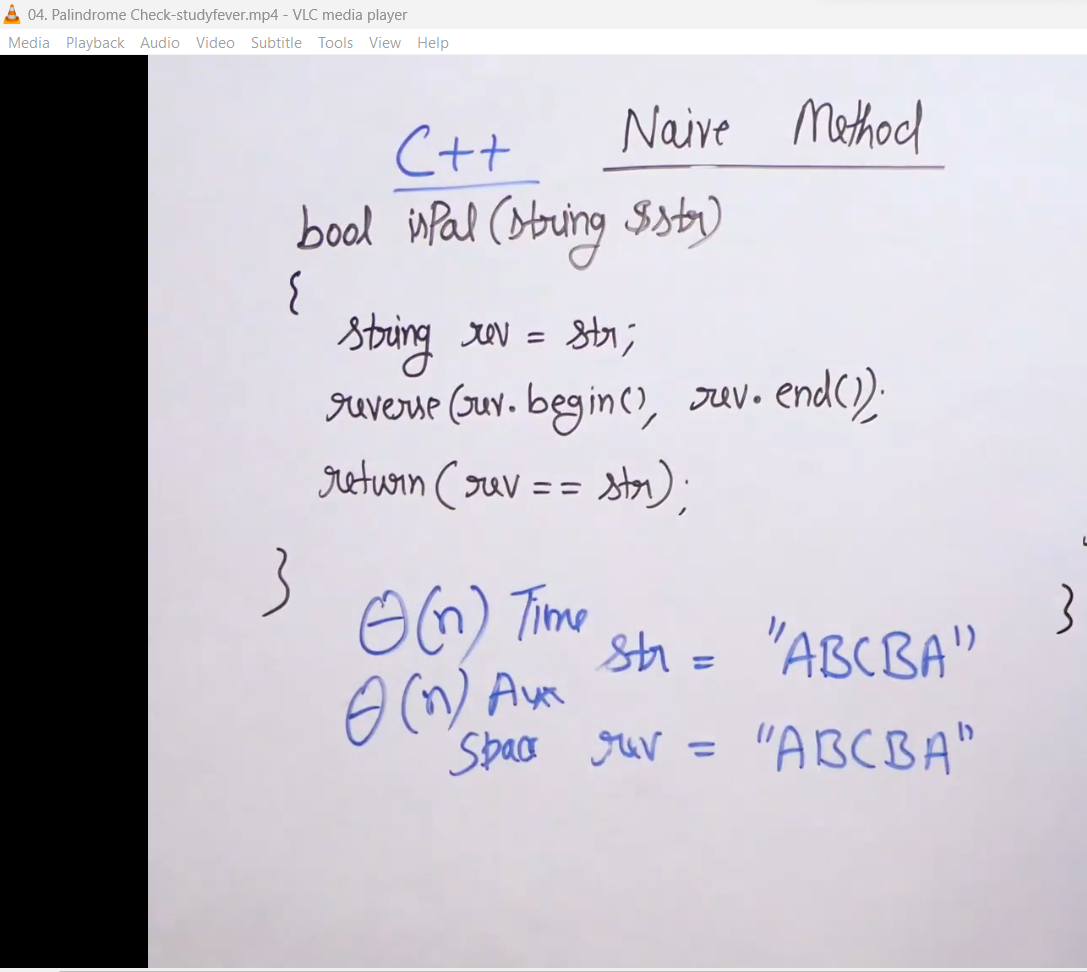 04. Palindrome Check-studyfever.mp4 - VLC media player
Media Playback Audio Video Subtitle Tools View Help
C++ Naive Method
bool isPal (string &str)
{
string rev = str;
reverse (rev.begin(), rev.end());
return (rev == str);
}
}
θ(n) Time
str = "ABCBA"
θ(n) Aux
Space rev = "ABCBA"